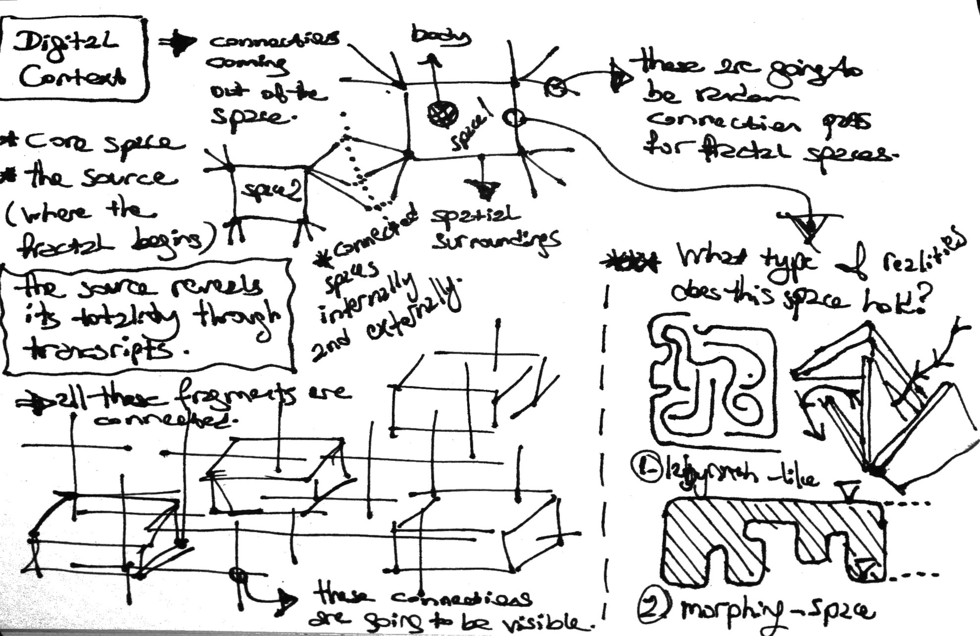 Digital
Context
connections
coming
out of the
space.
body
space 1
these are going to
be random
connection
for fractal spaces.
* Core space
* the source
(where the
fractal begins)
space 2
* connected
spaces
internally
and externally.
spatial
surroundings
*** What type of realities
does this space hold?
the source reveals
its totality through
transcripts.
all these fragments are
connected.
1- labyrinth-like
2) morphing-space
these connections
are going to be visible.